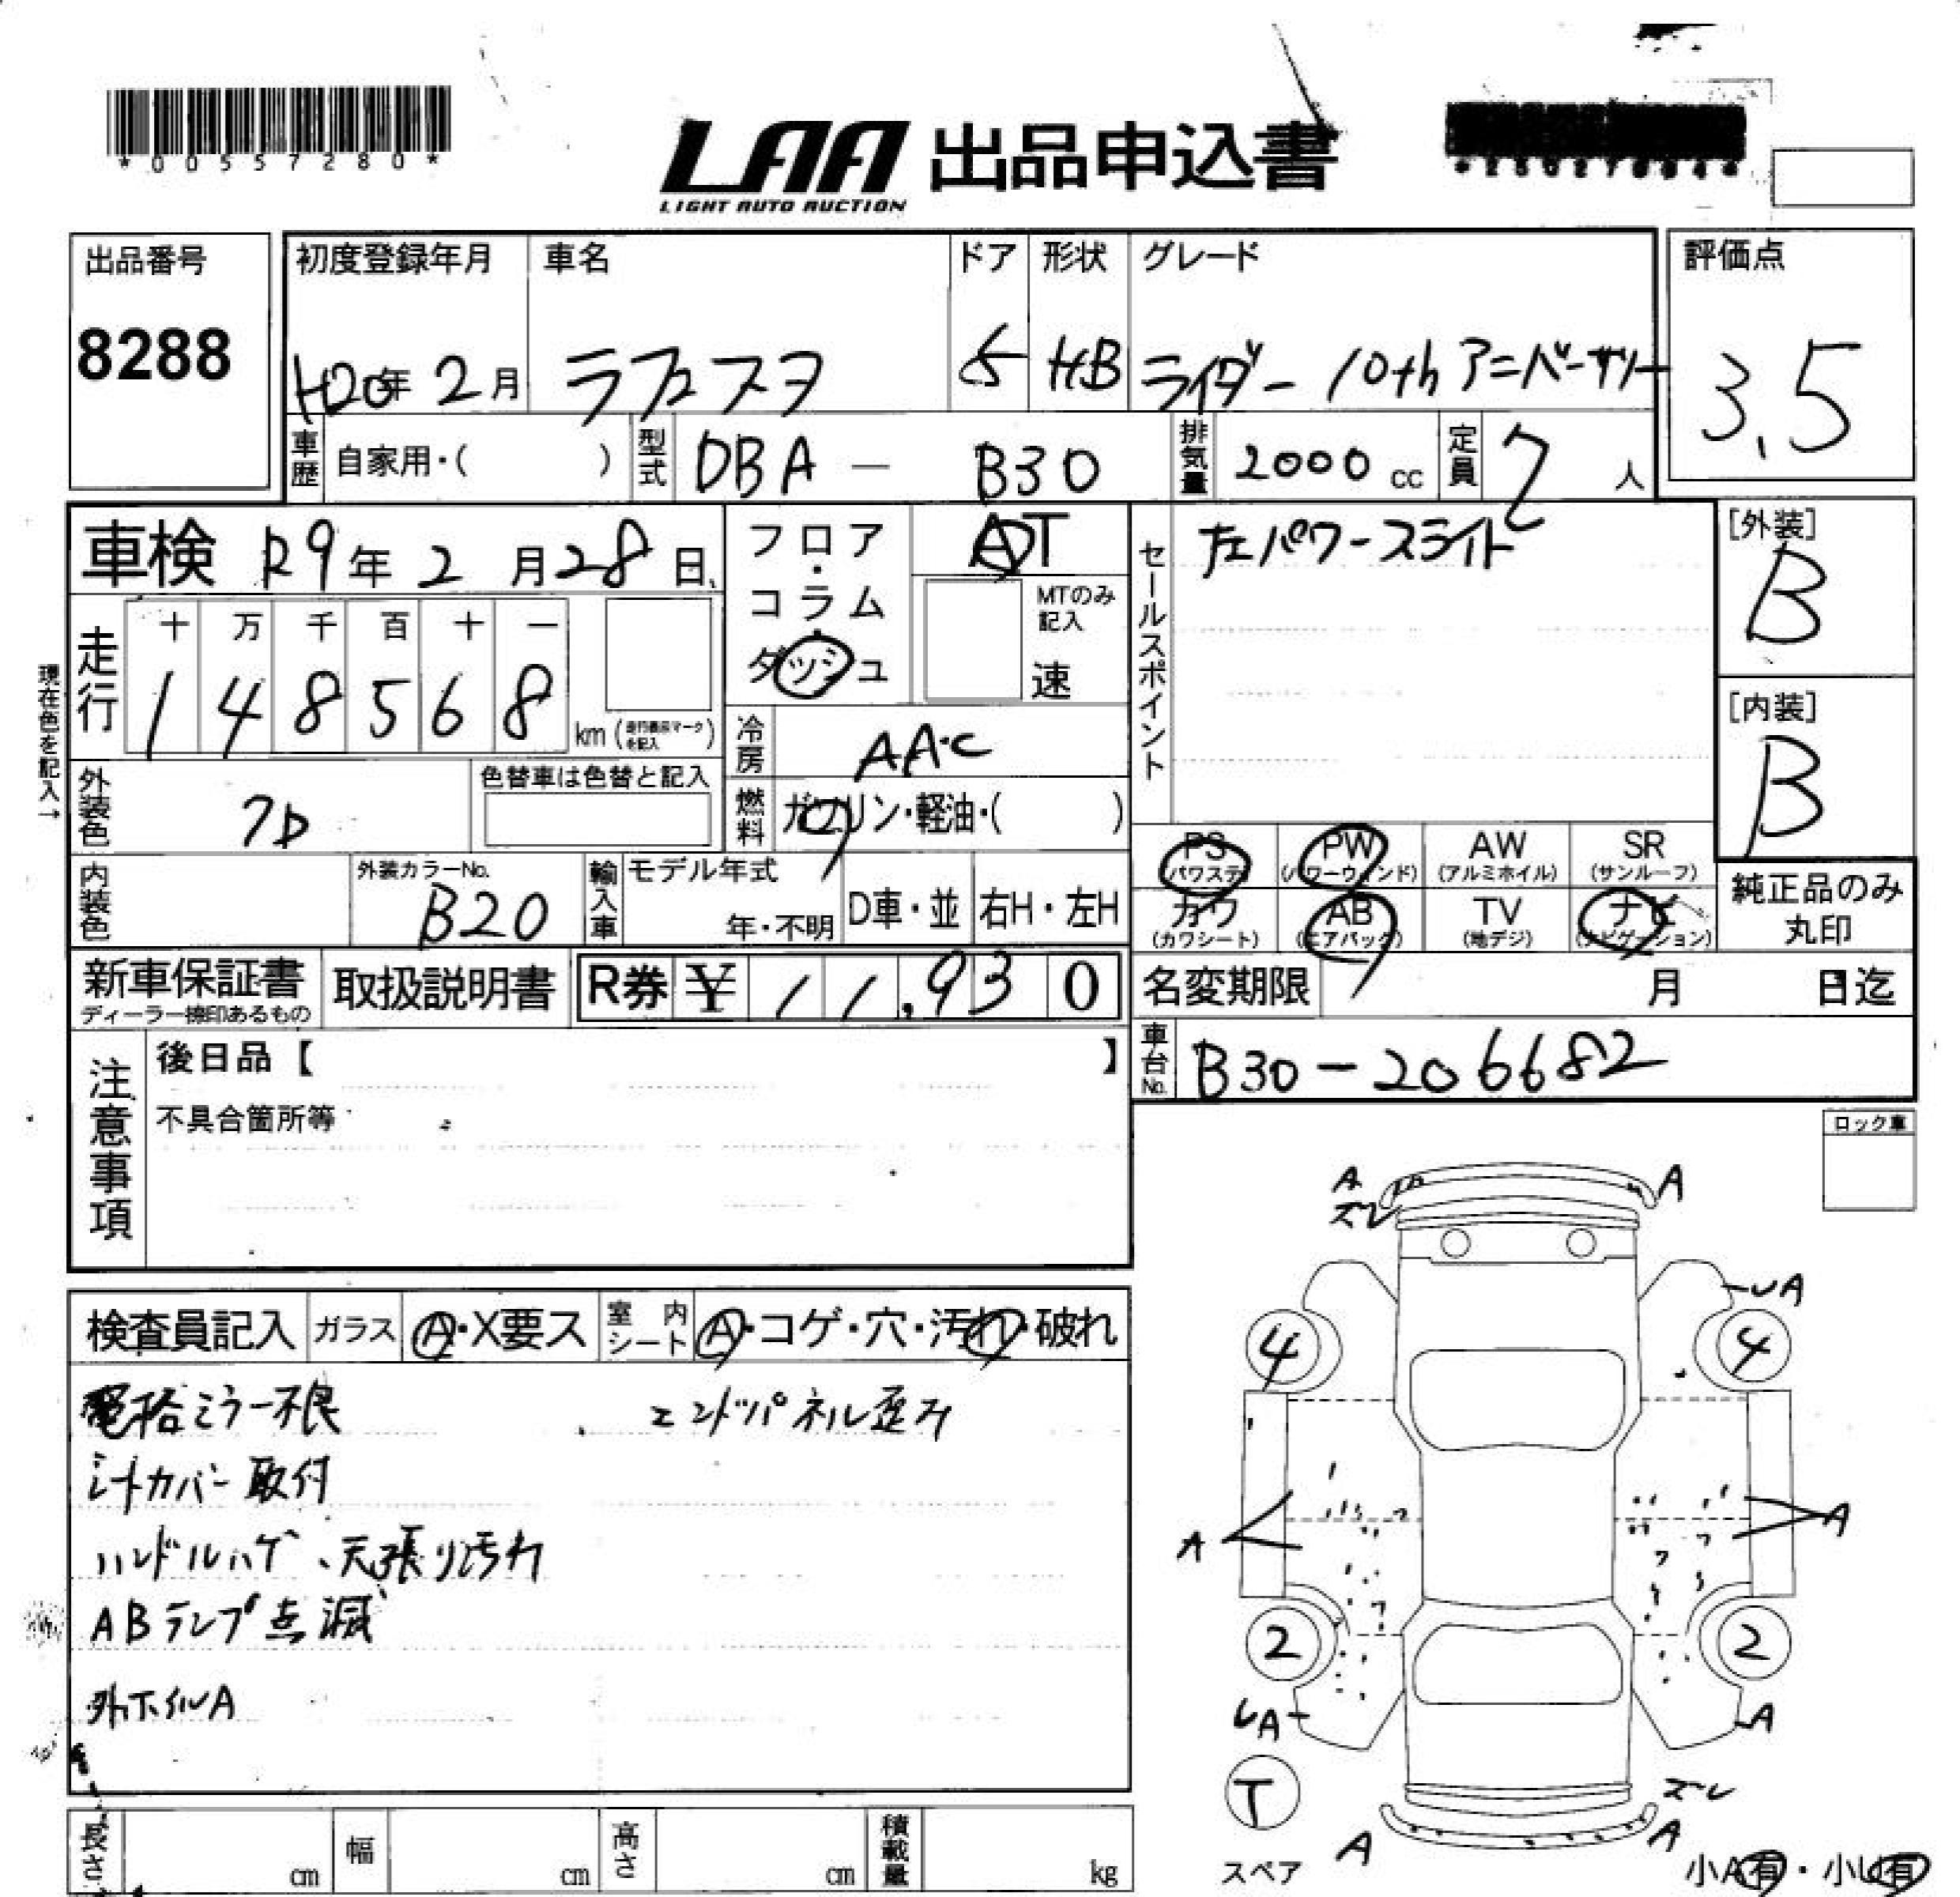 *00557280*
LAA 出品申込書
LIGHT AUTO AUCTION
出品番号
8288
初度登録年月
H20年 2月
車名
ラフェスタ
ドア
5
形状
HB
グレード
ライダー 10th アニバーサリー
評価点
3.5
車歴
自家用・( )
型式
DBA - B30
排気量
2000 cc
定員
7 人
車検 R9年 2月 28日
フロア・コラム・ダッシュ
AT
MTのみ記入
速
セールスポイント
左パワースライド
[外装]
B
[内装]
B
現在色を記入→
走行
十 万 千 百 十 一
1 4 8 5 6 8 km
冷房
AAC
外装色
クロ
色替車は色替と記入
燃料
ガソリン・軽油・( )
内装色
外装カラーNo.
B20
輸入車
モデル年式
年・不明
D車・並
右H・左H
PS (パワステ)
PW (パワーウインド)
AW (アルミホイル)
SR (サンルーフ)
カワ (カワシート)
AB (エアバック)
TV (地デジ)
ナビ (ナビゲーション)
純正品のみ
丸印
新車保証書
ディーラー捺印あるもの
取扱説明書
R券 ¥ 11,930
名変期限
月 日迄
車台No.
B30-206682
注意事項
後日品【 】
不具合箇所等
ロック車
検査員記入
ガラス
A・X要ス
室内シート
A・コゲ・穴・汚れ・破れ
電格ミラー不良
エンドパネル歪み
シートカバー取付
ハンドルハゲ、天張り汚れ
ABランプ点滅
外ホイルA
A
ズレ
A
UA
4
4
A
A
2
2
UA
A
T
スペア
ズレ
A
A
小A有・小U有
長さ
cm
幅
cm
高さ
cm
積載量
kg